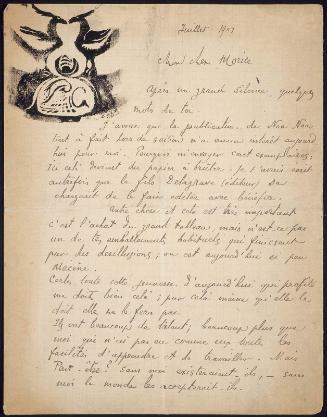 Juillet - 1901
Mon cher Morice
Après un grand silence, quelques
mots de toi.
J'avoue que la publication de Noa Noa
tout à fait hors de saison n'a aucun intérêt aujourd
hui pour moi. Pourquoi m'envoyer cent exemplaires;
Ici cela devient du papier à brûler. Je t'avais écrit
autrefois que le fils Delagrave (éditeur) se
chargeait de le faire éditer avec bénéfice.
Autre chose et cela est très important
c'est l'achat du grand tableau, mais n'est-ce pas
un de tes emballements habituels qui finissent
par des désillusions; on est aujourd'hui si peu
Mécène.
Certes toute cette jeunesse d'aujourd'hui qui profite
me doit bien cela; pour cela même qu'elle le
doit elle ne le fera pas.
Ils ont beaucoup de talent; beaucoup plus que
moi qui n'ai pas eu comme eux toutes les
facilités d'apprendre et de travailler. Mais
Peut-être? sans moi existeraient-ils, - sans
moi le monde les accepterait-ils.